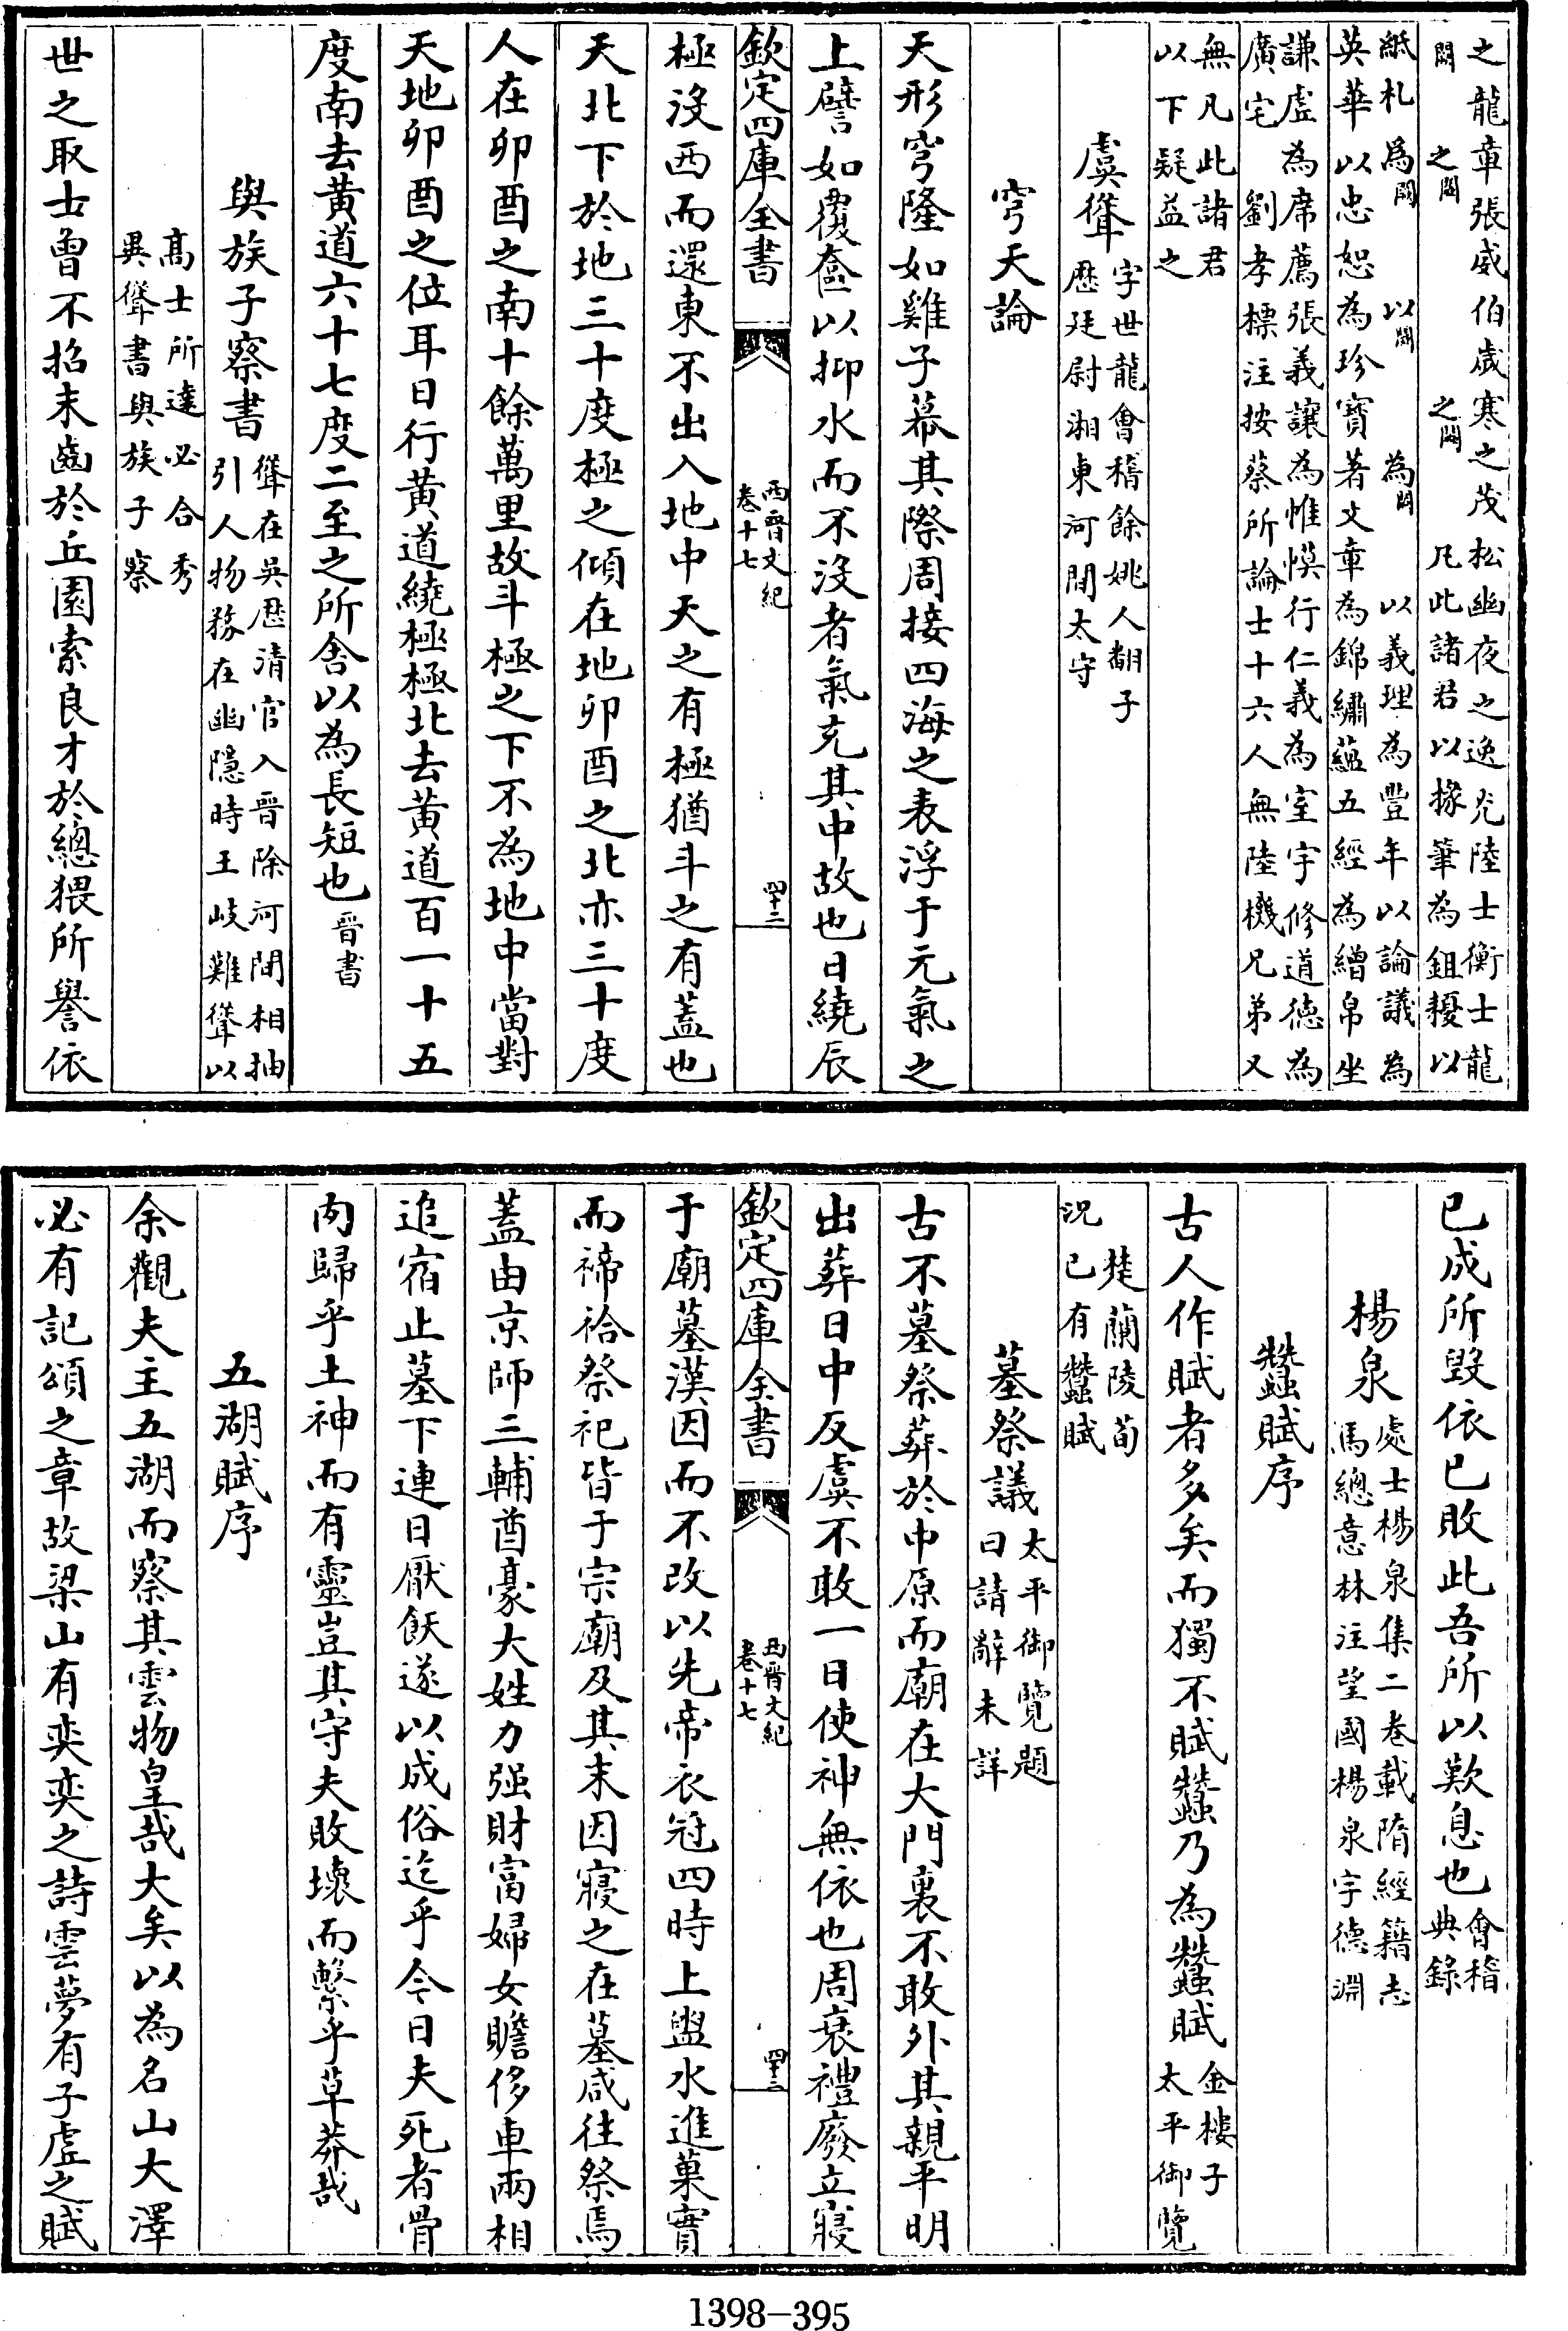 之龍章張威伯歲寒之茂松幽夜之逸光陸士衡士龍
闕之闕之闕凡此諸君以掾筆為鉏耰以
紙札爲闕以闕為闕以義理為豐年以論議為
英華以忠恕為珍寶著文章為錦繡蘊五經為繒帛坐
謙虛為席薦張義讓為帷幙行仁義為室宇修道德為
廣宅劉孝標注按蔡所論士十六人無陸機兄弟又
無凡此諸君
以下疑益之
虞聳字世龍會稽餘姚人翻子
歴廷尉湘東河間太守
穹天論
天形穹隆如雞子幕其際周接四海之表浮于元氣之
上譬如覆奩以抑水而不沒者氣充其中故也日繞辰
欽定四庫全書
西晉文紀
卷十七
四十二
極沒西而還東不出入地中天之有極猶斗之有蓋也
天北下於地三十度極之傾在地卯酉之北亦三十度
人在卯酉之南十餘萬里故斗極之下不為地中當對
天地卯酉之位耳日行黄道繞極極北去黄道百一十五
度南去黄道六十七度二至之所舍以為長短也晉書
與族子察書聳在吳歴清官入晉除河間相抽
引人物務在幽隱時王岐難聳以
高士所達必合秀
異聳書與族子察
世之取士曾不招末齒於丘園索良才於總猥所譽依
已成所毀依已敗此吾所以歎息也會稽
典錄
楊泉處士楊泉集二巻載隋經籍志
馬總意林注望國楊泉字德淵
蠶賦序
古人作賦者多矣而獨不賦蠶乃為蠶賦金樓子
太平御覽
楚蘭陵荀
況已有蠶賦
墓祭議太平御覽題
曰請辭未詳
古不墓祭葬於中原而廟在大門裏不敢外其親平明
出葬日中反虞不敢一日使神無依也周衰禮廢立寢
欽定四庫全書
西晉文紀
卷十七
四十三
于廟墓漢因而不改以先帝衣冠四時上盥水進菓實
而禘祫祭祀皆于宗廟及其末因寢之在墓咸往祭焉
蓋由京師三輔酋豪大姓力强財富婦女贍侈車兩相
追宿止墓下連日厭飫遂以成俗迄乎今日夫死者骨
肉歸乎土神而有靈豈其守夫敗壞而繫乎草莽哉
五湖賦序
余觀夫主五湖而察其雲物皇哉大矣以為名山大澤
必有記頌之章故梁山有奕奕之詩雲夢有子虛之賦
1398-395